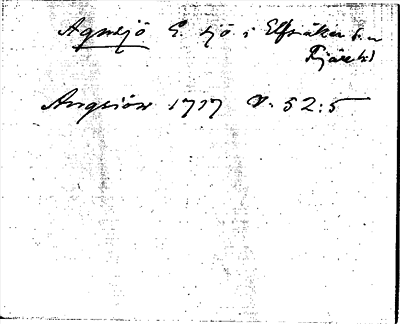 Agnsjö E. sjö i Elfsåker sn
Fjäre hd
Angsiön 1717 V. 52:5